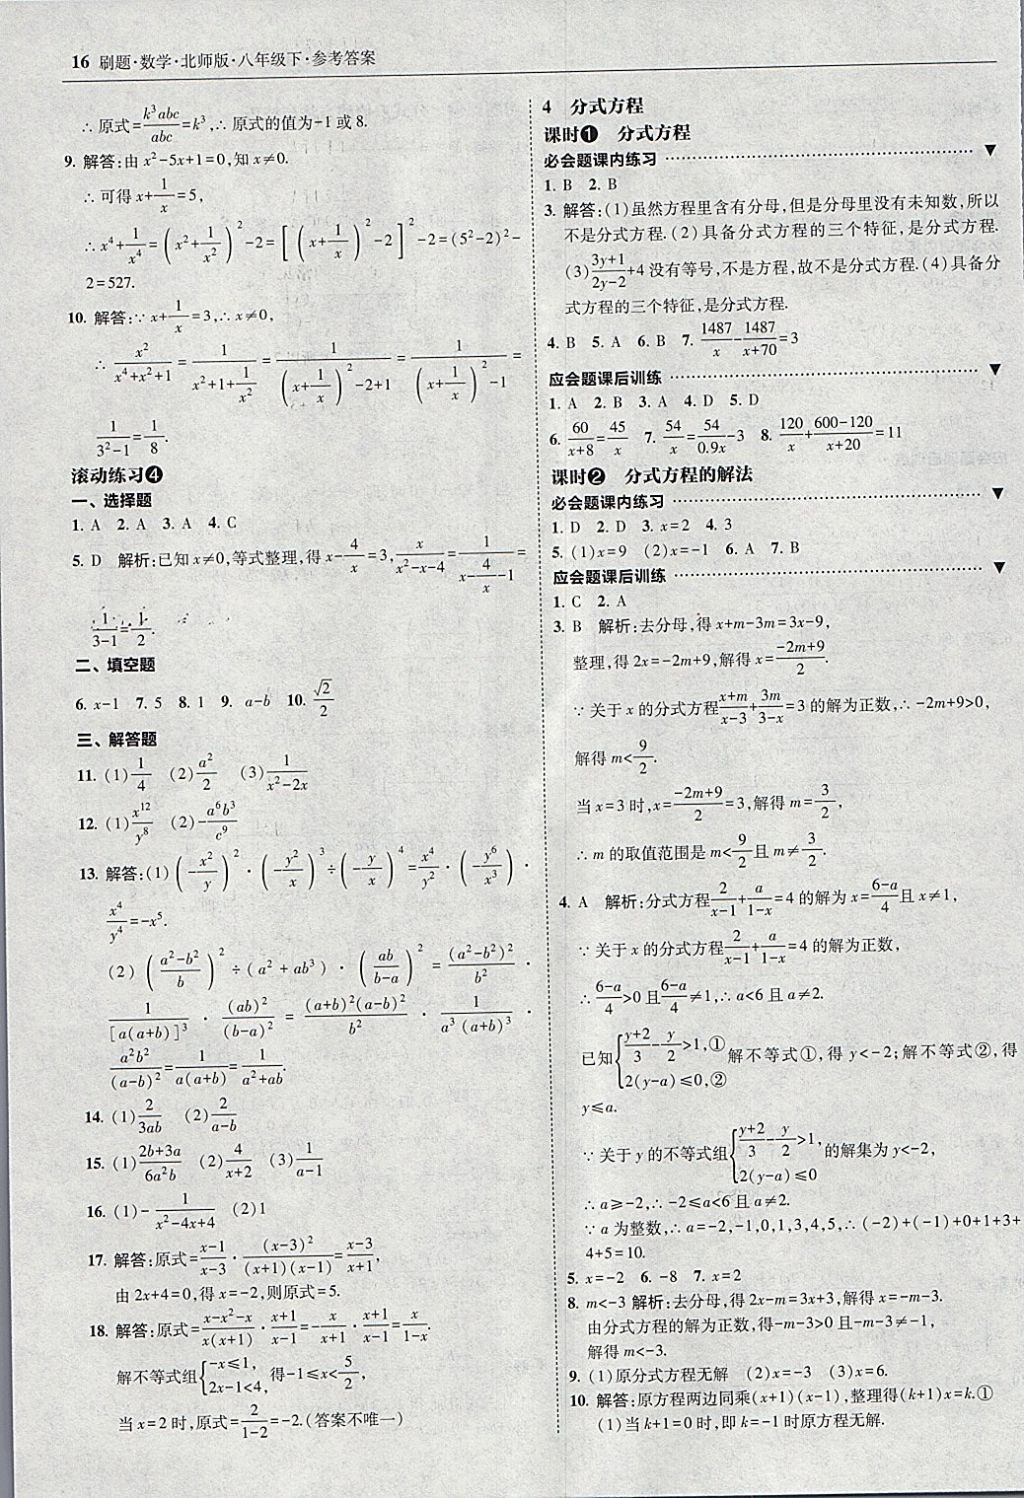 16 刷题·数学·北师版·八年级下·参考答案
∴原式=k³abc/abc=k³,∴原式的值为-1或8.
9. 解答:由x²-5x+1=0,知x≠0.
∴可得x+1/x=5,
∴x⁴+1/x⁴=(x²+1/x²)²-2=[(x+1/x)²-2]²-2=(5²-2)²-
2=527.
10. 解答:∵x+1/x=3,∴x≠0,
∴x²/(x⁴+x²+1)=1/(x²+1+1/x²)=1/((x+1/x)²-2+1)=1/((x+1/x)²-1)=
1/(3²-1)=1/8.
滚动练习❹
一、选择题
1. A 2. A 3. A 4. C
5. D 解析:已知x≠0,等式整理,得x-4/x=3,x/(x²-x-4)=1/(x-4/x-1)=
1/(3-1)=1/2.
二、填空题
6. x-1 7. 5 8. 1 9. a-b 10. √2/2
三、解答题
11. (1)1/4 (2)a²/2 (3)1/(x²-2x)
12. (1)x¹²/y⁸ (2)-a⁶b³/c⁹
13. 解答:(1)(-x²/y)²·(-y²/x)³÷(-y/x)⁴=x⁴/y²·(-y⁶/x³)·
x⁴/y⁴=-x⁵.
(2)((a²-b²)/b)²÷(a²+ab³)·(ab/(b-a))²=(a²-b²)²/b²·
1/[a(a+b)]³·(ab)²/(b-a)²=(a+b)²(a-b)²/b²·1/(a³(a+b)³)·
a²b²/(a-b)²=1/(a(a+b))=1/(a²+ab).
14. (1)2/3ab (2)2/(a-b)
15. (1)(2b+3a)/6a²b (2)4/(x+2) (3)1/(a-1)
16. (1)-1/(x²-4x+4) (2)1
17. 解答:原式=(x-1)/(x-3)·(x-3)²/((x+1)(x-1))=(x-3)/(x+1),
由2x+4=0,得x=-2,则原式=5.
18. 解答:原式=(x-x²-x)/(x(x+1))·(x+1)/(x-1)=-x/(x+1)·(x+1)/(x-1)=x/(1-x).
解不等式组{-x≤1, 2x-1<4, 得-1≤x<5/2,
当x=2时,原式=2/(1-2)=-2.(答案不唯一)
4 分式方程
课时❶ 分式方程
必会题课内练习 ▼
1. B 2. B
3. 解答:(1)虽然方程里含有分母,但是分母里没有未知数,所以
不是分式方程.(2)具备分式方程的三个特征,是分式方程.
(3)(3y+1)/(2y-2)+4没有等号,不是方程,故不是分式方程.(4)具备分
式方程的三个特征,是分式方程.
4. B 5. A 6. B 7. 1487/x-1487/(x+70)=3
应会题课后训练 ▼
1. A 2. B 3. A 4. D 5. D
6. 60/(x+8)=45/x 7. 54/x=54/0.9x-3 8. 120/x+(600-120)/(x+20)=11
课时❷ 分式方程的解法
必会题课内练习 ▼
1. D 2. D 3. x=2 4. 3
5. (1)x=9 (2)x=-1 6. A 7. B
应会题课后训练 ▼
1. C 2. A
3. B 解析:去分母,得x+m-3m=3x-9,
整理,得2x=-2m+9,解得x=(-2m+9)/2.
∵关于x的分式方程(x+m)/(x-3)+3m/(3-x)=3的解为正数,∴-2m+9>0,
解得m<9/2.
当x=3时,x=(-2m+9)/2=3,解得m=3/2,
∴m的取值范围是m<9/2且m≠3/2.
4. A 解析:分式方程2/(x-1)+a/(1-x)=4的解为x=(6-a)/4且x≠1,
∵关于x的分式方程2/(x-1)+a/(1-x)=4的解为正数,
∴(6-a)/4>0且(6-a)/4≠1,∴a<6且a≠2.
已知{(y+2)/3-y/2>1,① 2(y-a)≤0,② 解不等式①,得y<-2;解不等式②,得
y≤a.
∵关于y的不等式组{(y+2)/3-y/2>1, 2(y-a)≤0 的解集为y<-2,
∴a≥-2,∴-2≤a<6且a≠2.
∵a为整数,∴a=-2,-1,0,1,3,4,5,∴(-2)+(-1)+0+1+3+
4+5=10.
5. x=-2 6. -8 7. x=2
8. m<-3 解析:去分母,得2x-m=3x+3,解得x=-m-3.
由分式方程的解为正数,得-m-3>0且-m-3≠-1,
解得m<-3.
9. (1)原分式方程无解 (2)x=-3 (3)x=6.
10. 解答:原方程两边同乘(x+1)(x-1),整理得(k+1)x=k.①
(1)当k+1=0时,即k=-1时原方程无解.